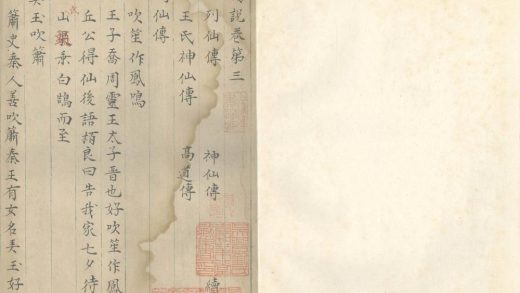 說卷第三
列仙傳 神仙傳 續
王氏神仙傳 高道傳
仙傳
吹笙作鳳鳴
王子喬周靈王太子晋也好吹笙作鳳
丘公得仙後語栢良曰告我家七夕待
山乘白鵠而至
美玉吹簫
簫史秦人善吹簫秦王有女名美玉好